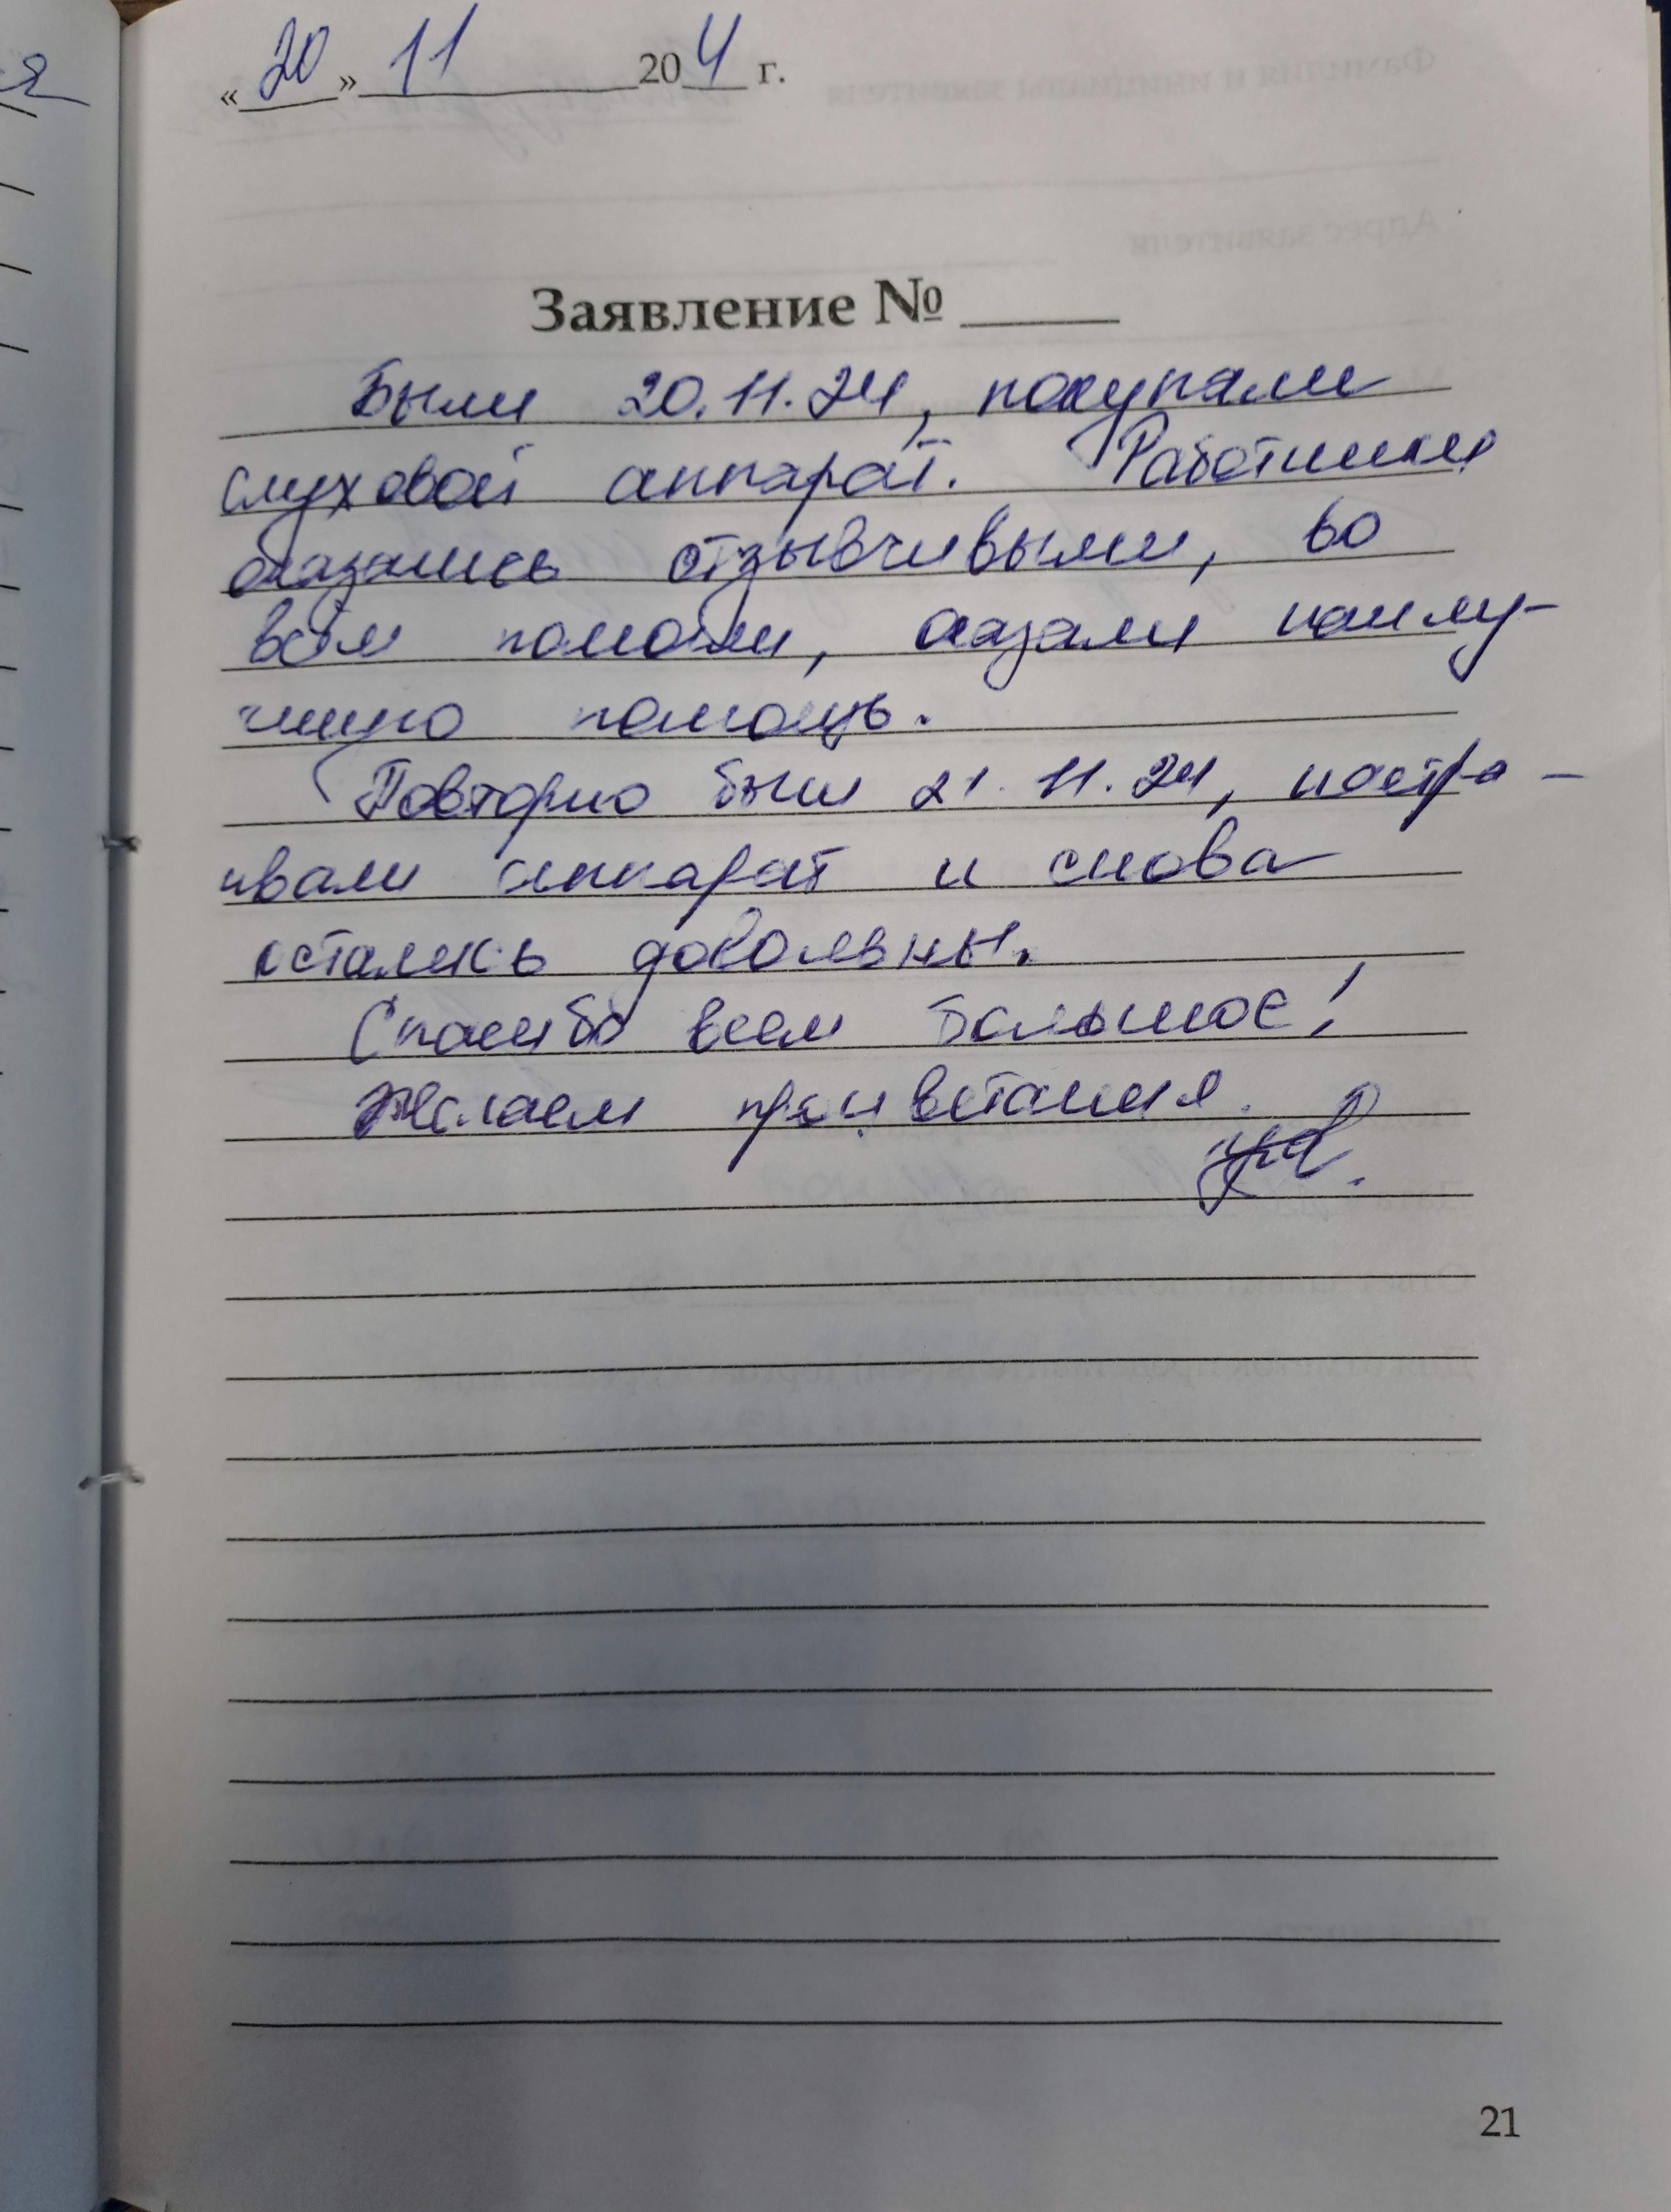 «20» 11 204 г.
Заявление № ____
Были 20.11.24, покупали
слуховой аппарат. Работники
оказались отзывчивыми, во
всём помогли, оказали наилу-
чшую помощь.
Повторно были 21.11.24, настра-
ивали аппарат и снова
остались довольны.
Спасибо всем большое!
Желаем процветания.
21